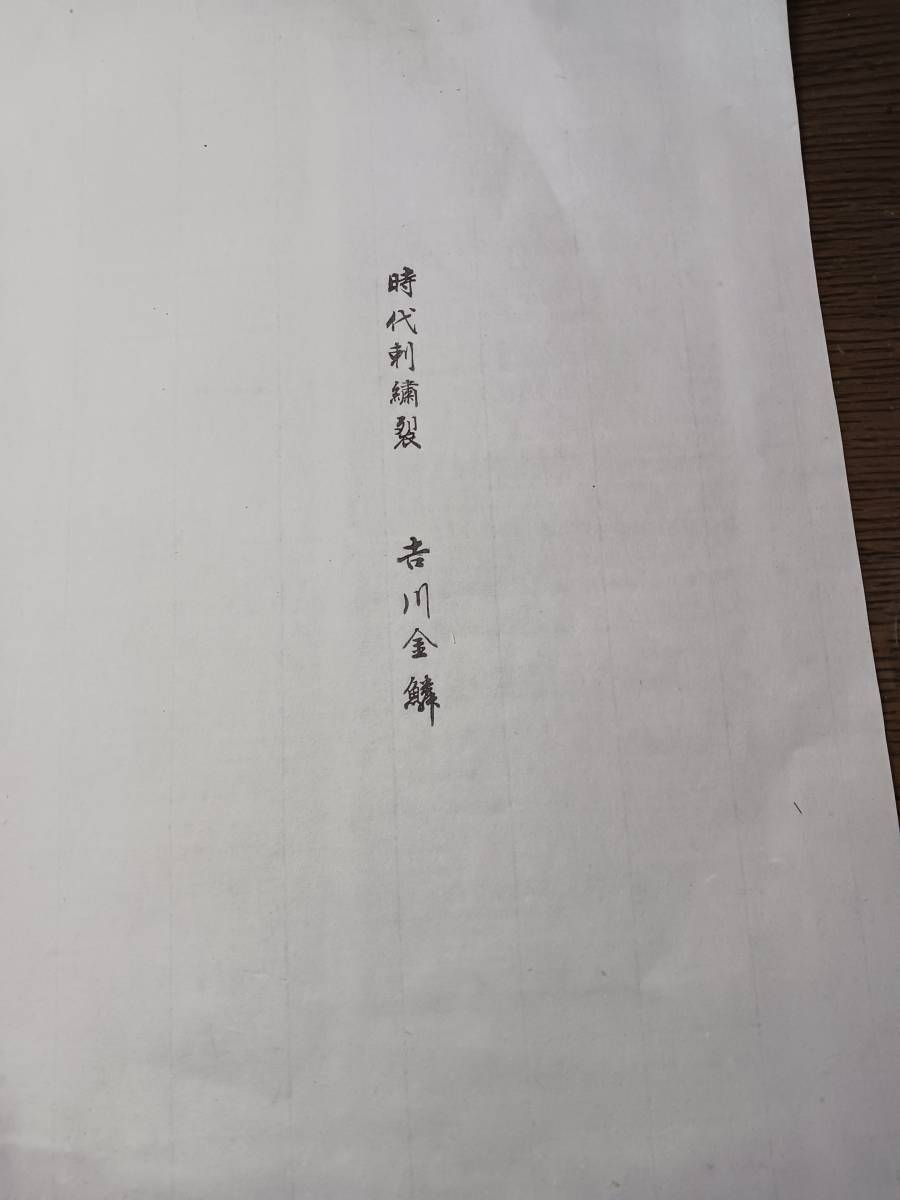 時代刺繍裂　𠮷川金鱗